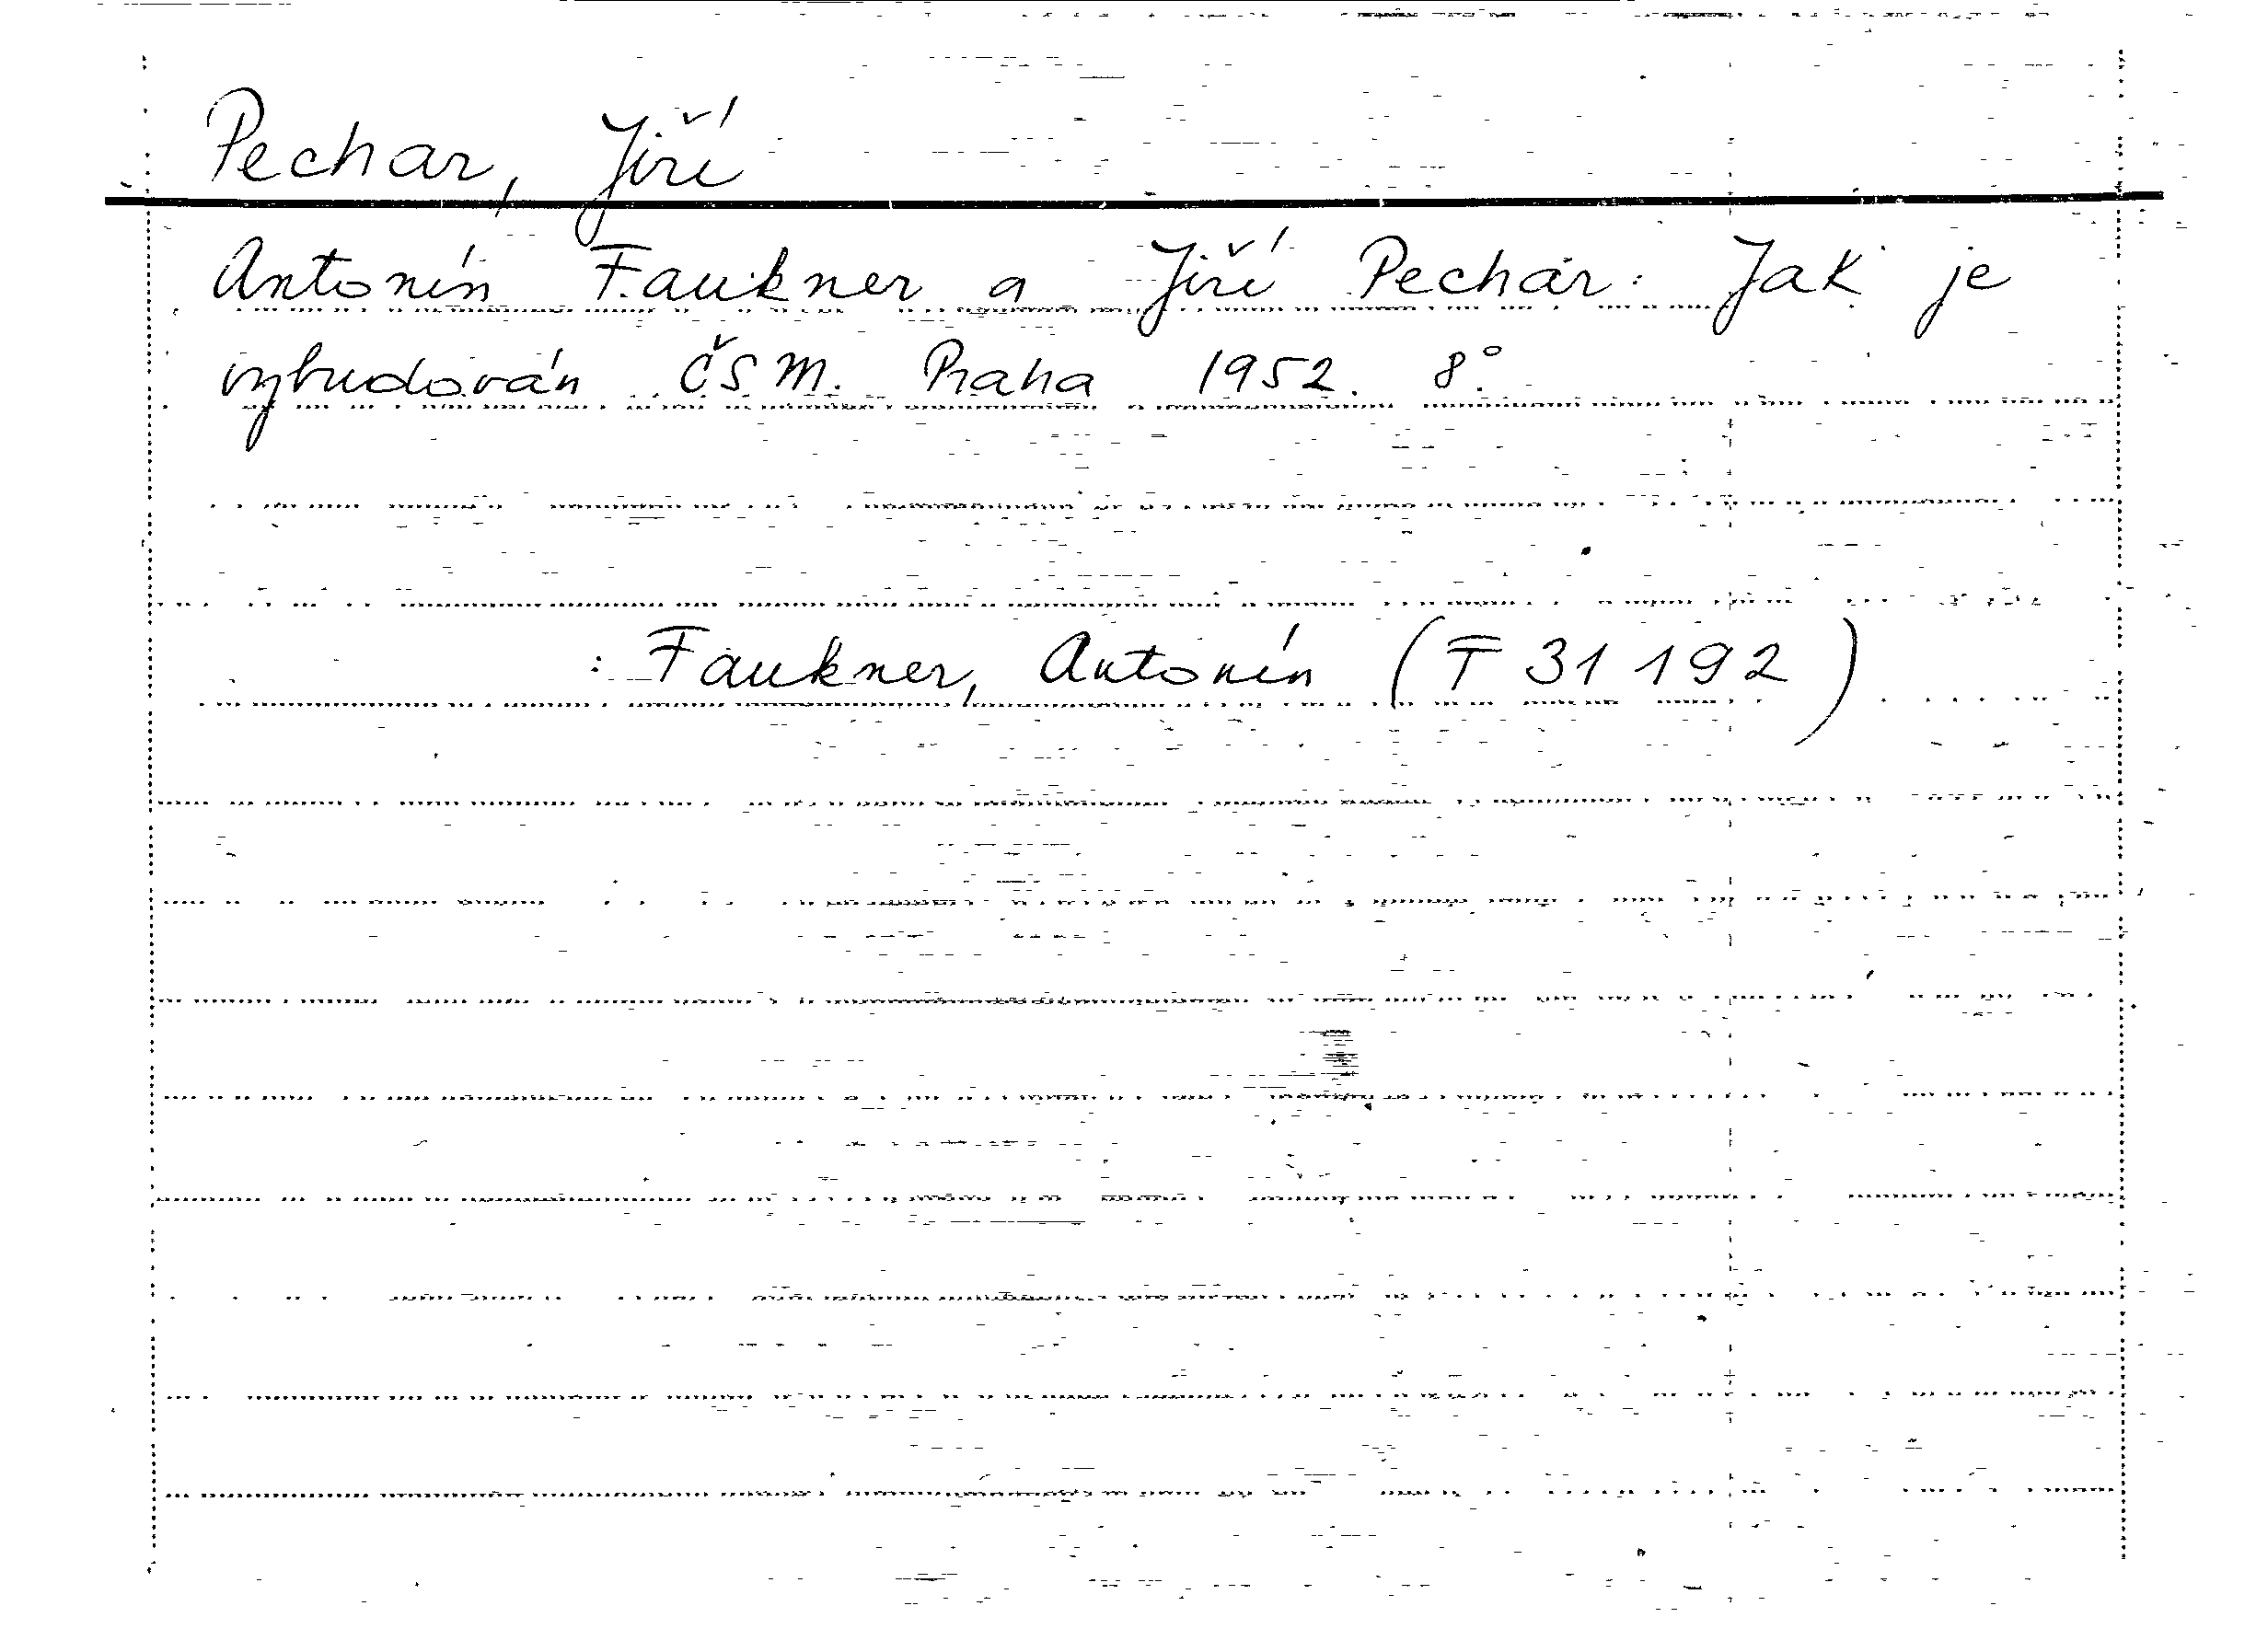 Pechar, Jiří
Antonín Faukner a Jiří Pechar: Jak je
vybudován ČSM. Praha 1952. 8°.
: Faukner, Antonín (T 31 192)